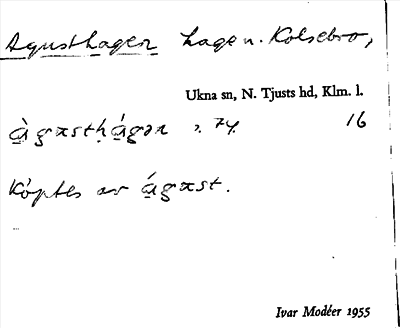 Agusthagen hage n. Kolsebro,
Ukna sn, N. Tjusts hd, Klm. l.
ὰgæstḥágən 2. 74. 16
Köptes av ágæst.
Ivar Modéer 1955